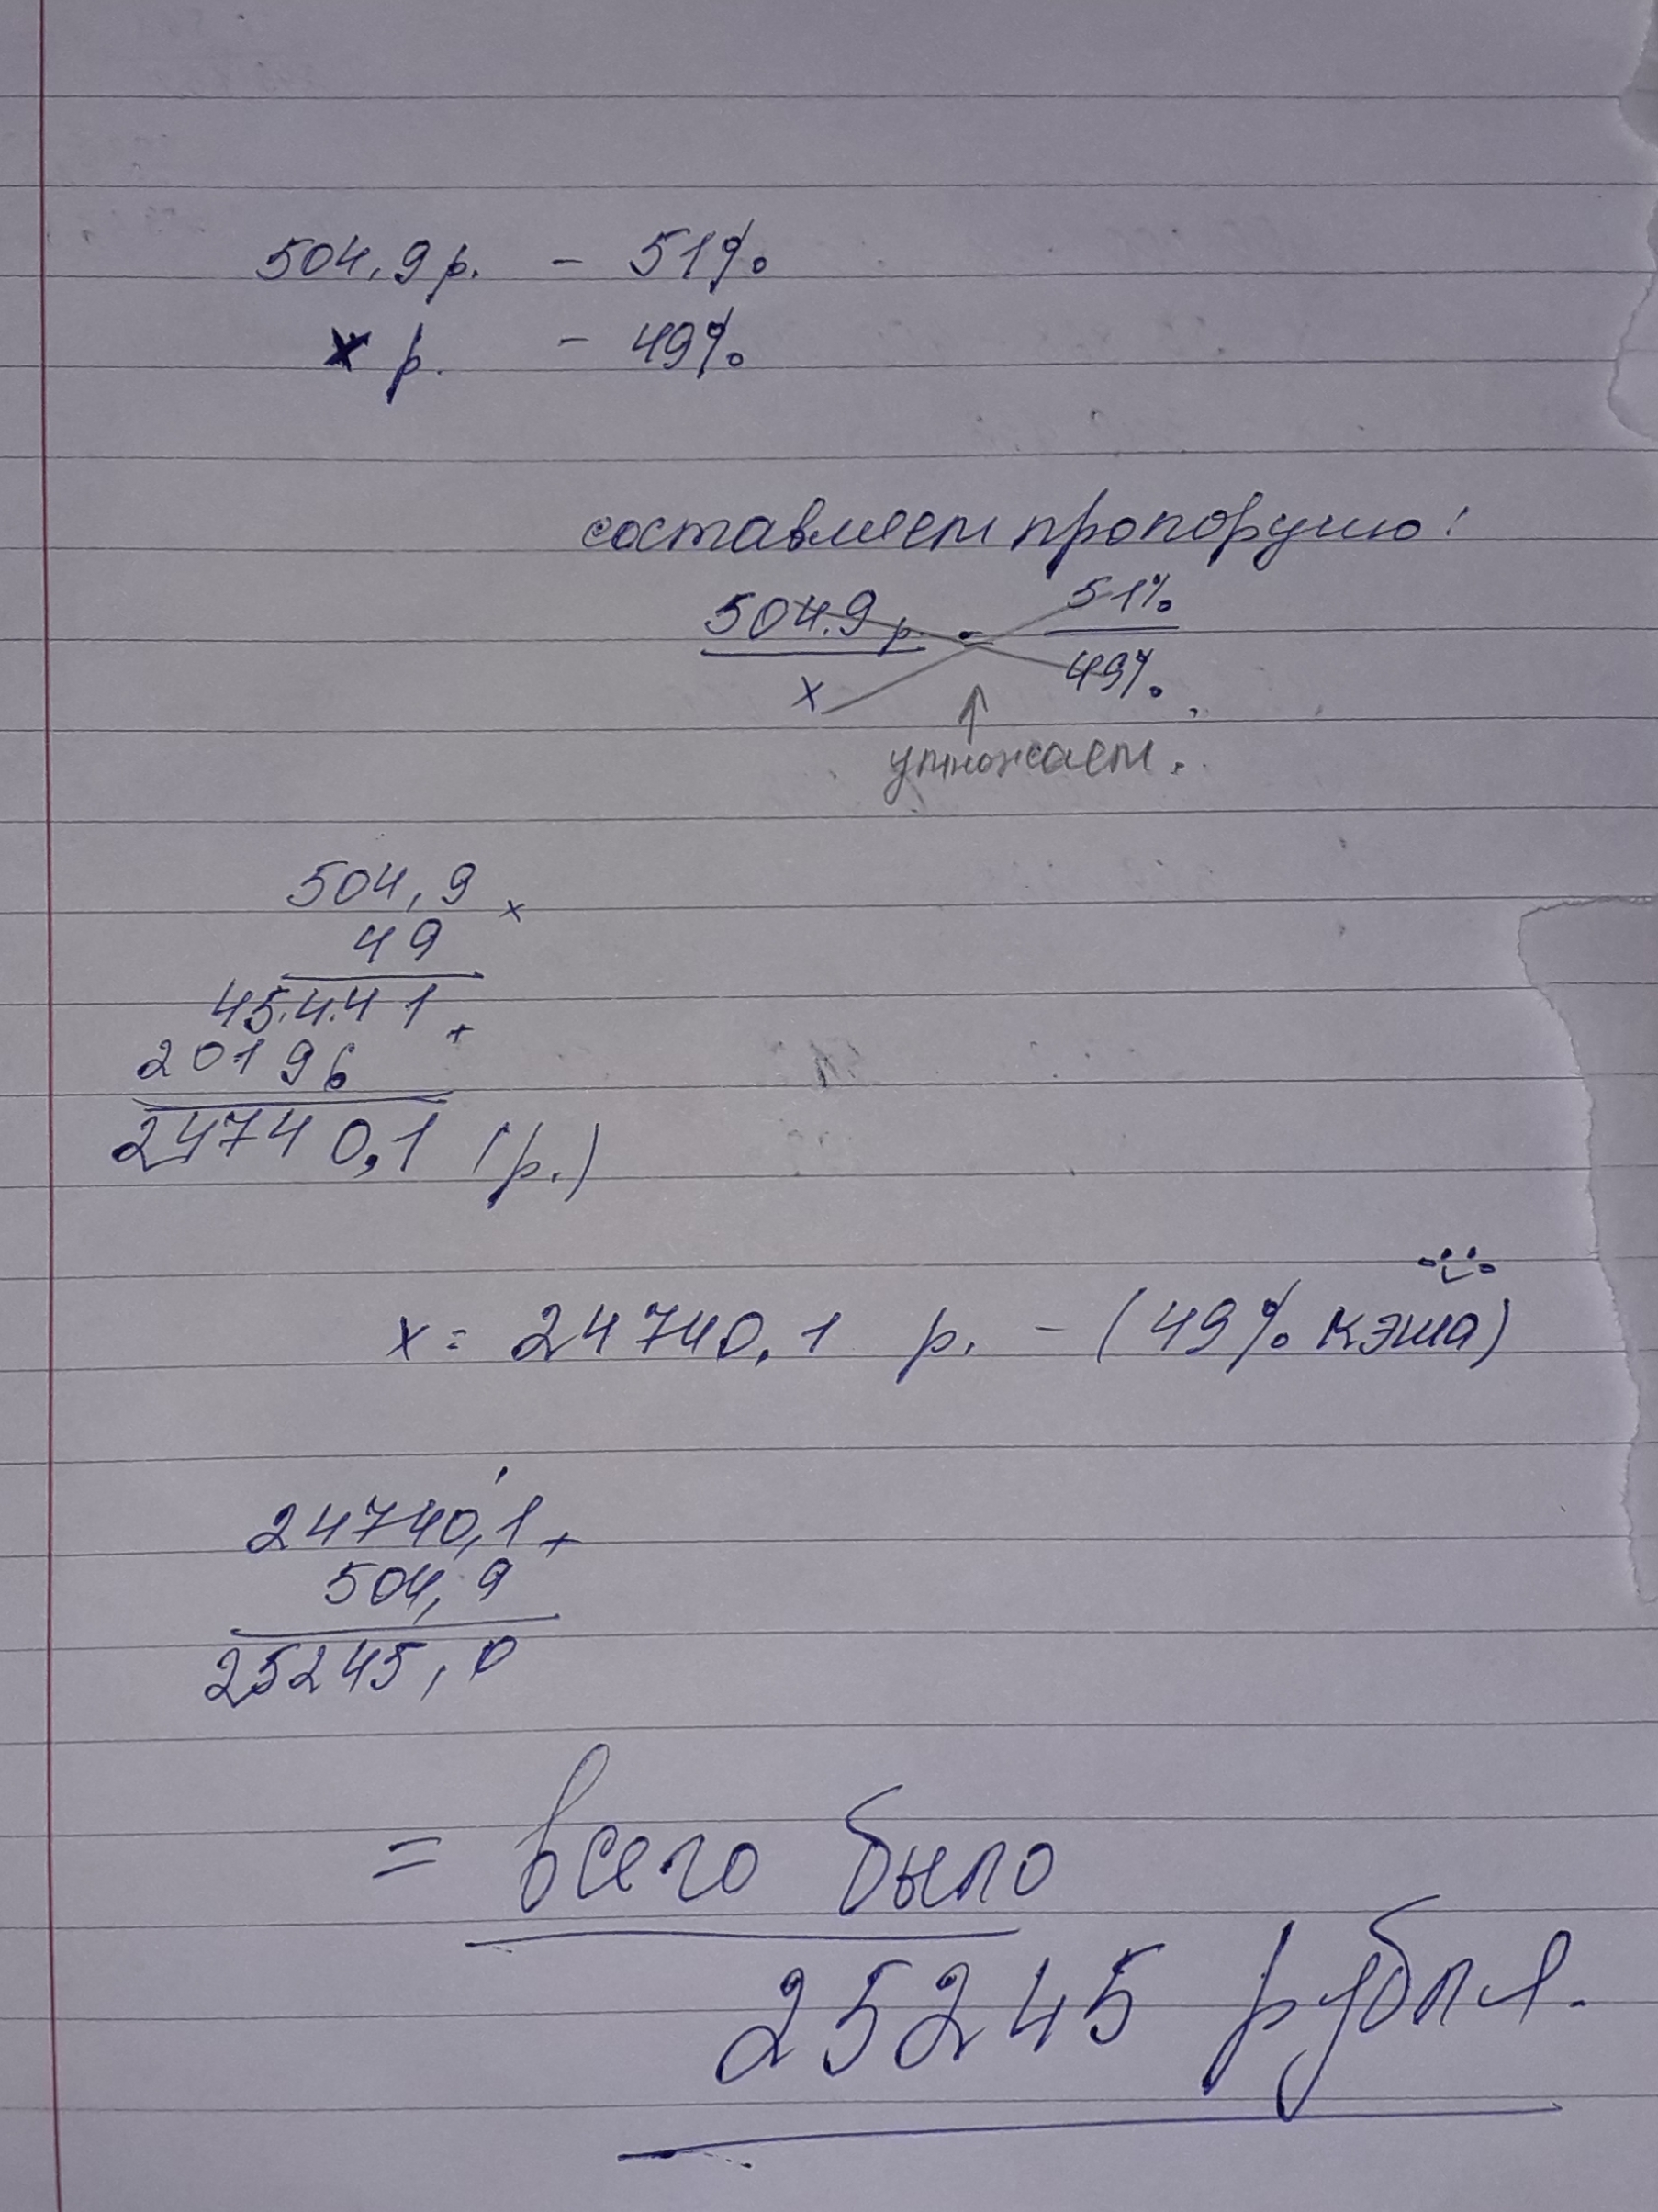 504,9 р. - 51%
х р. - 49%
составляем пропорцию:
504.9 р. = 51%
х 49%.
умножаем.
504,9 ×
49
45441 +
20196
24740,1 (р.)
х = 24740,1 р. - (49% кэша)
24740,1 +
504,9
25245,0
= всего было
25245 рубля.